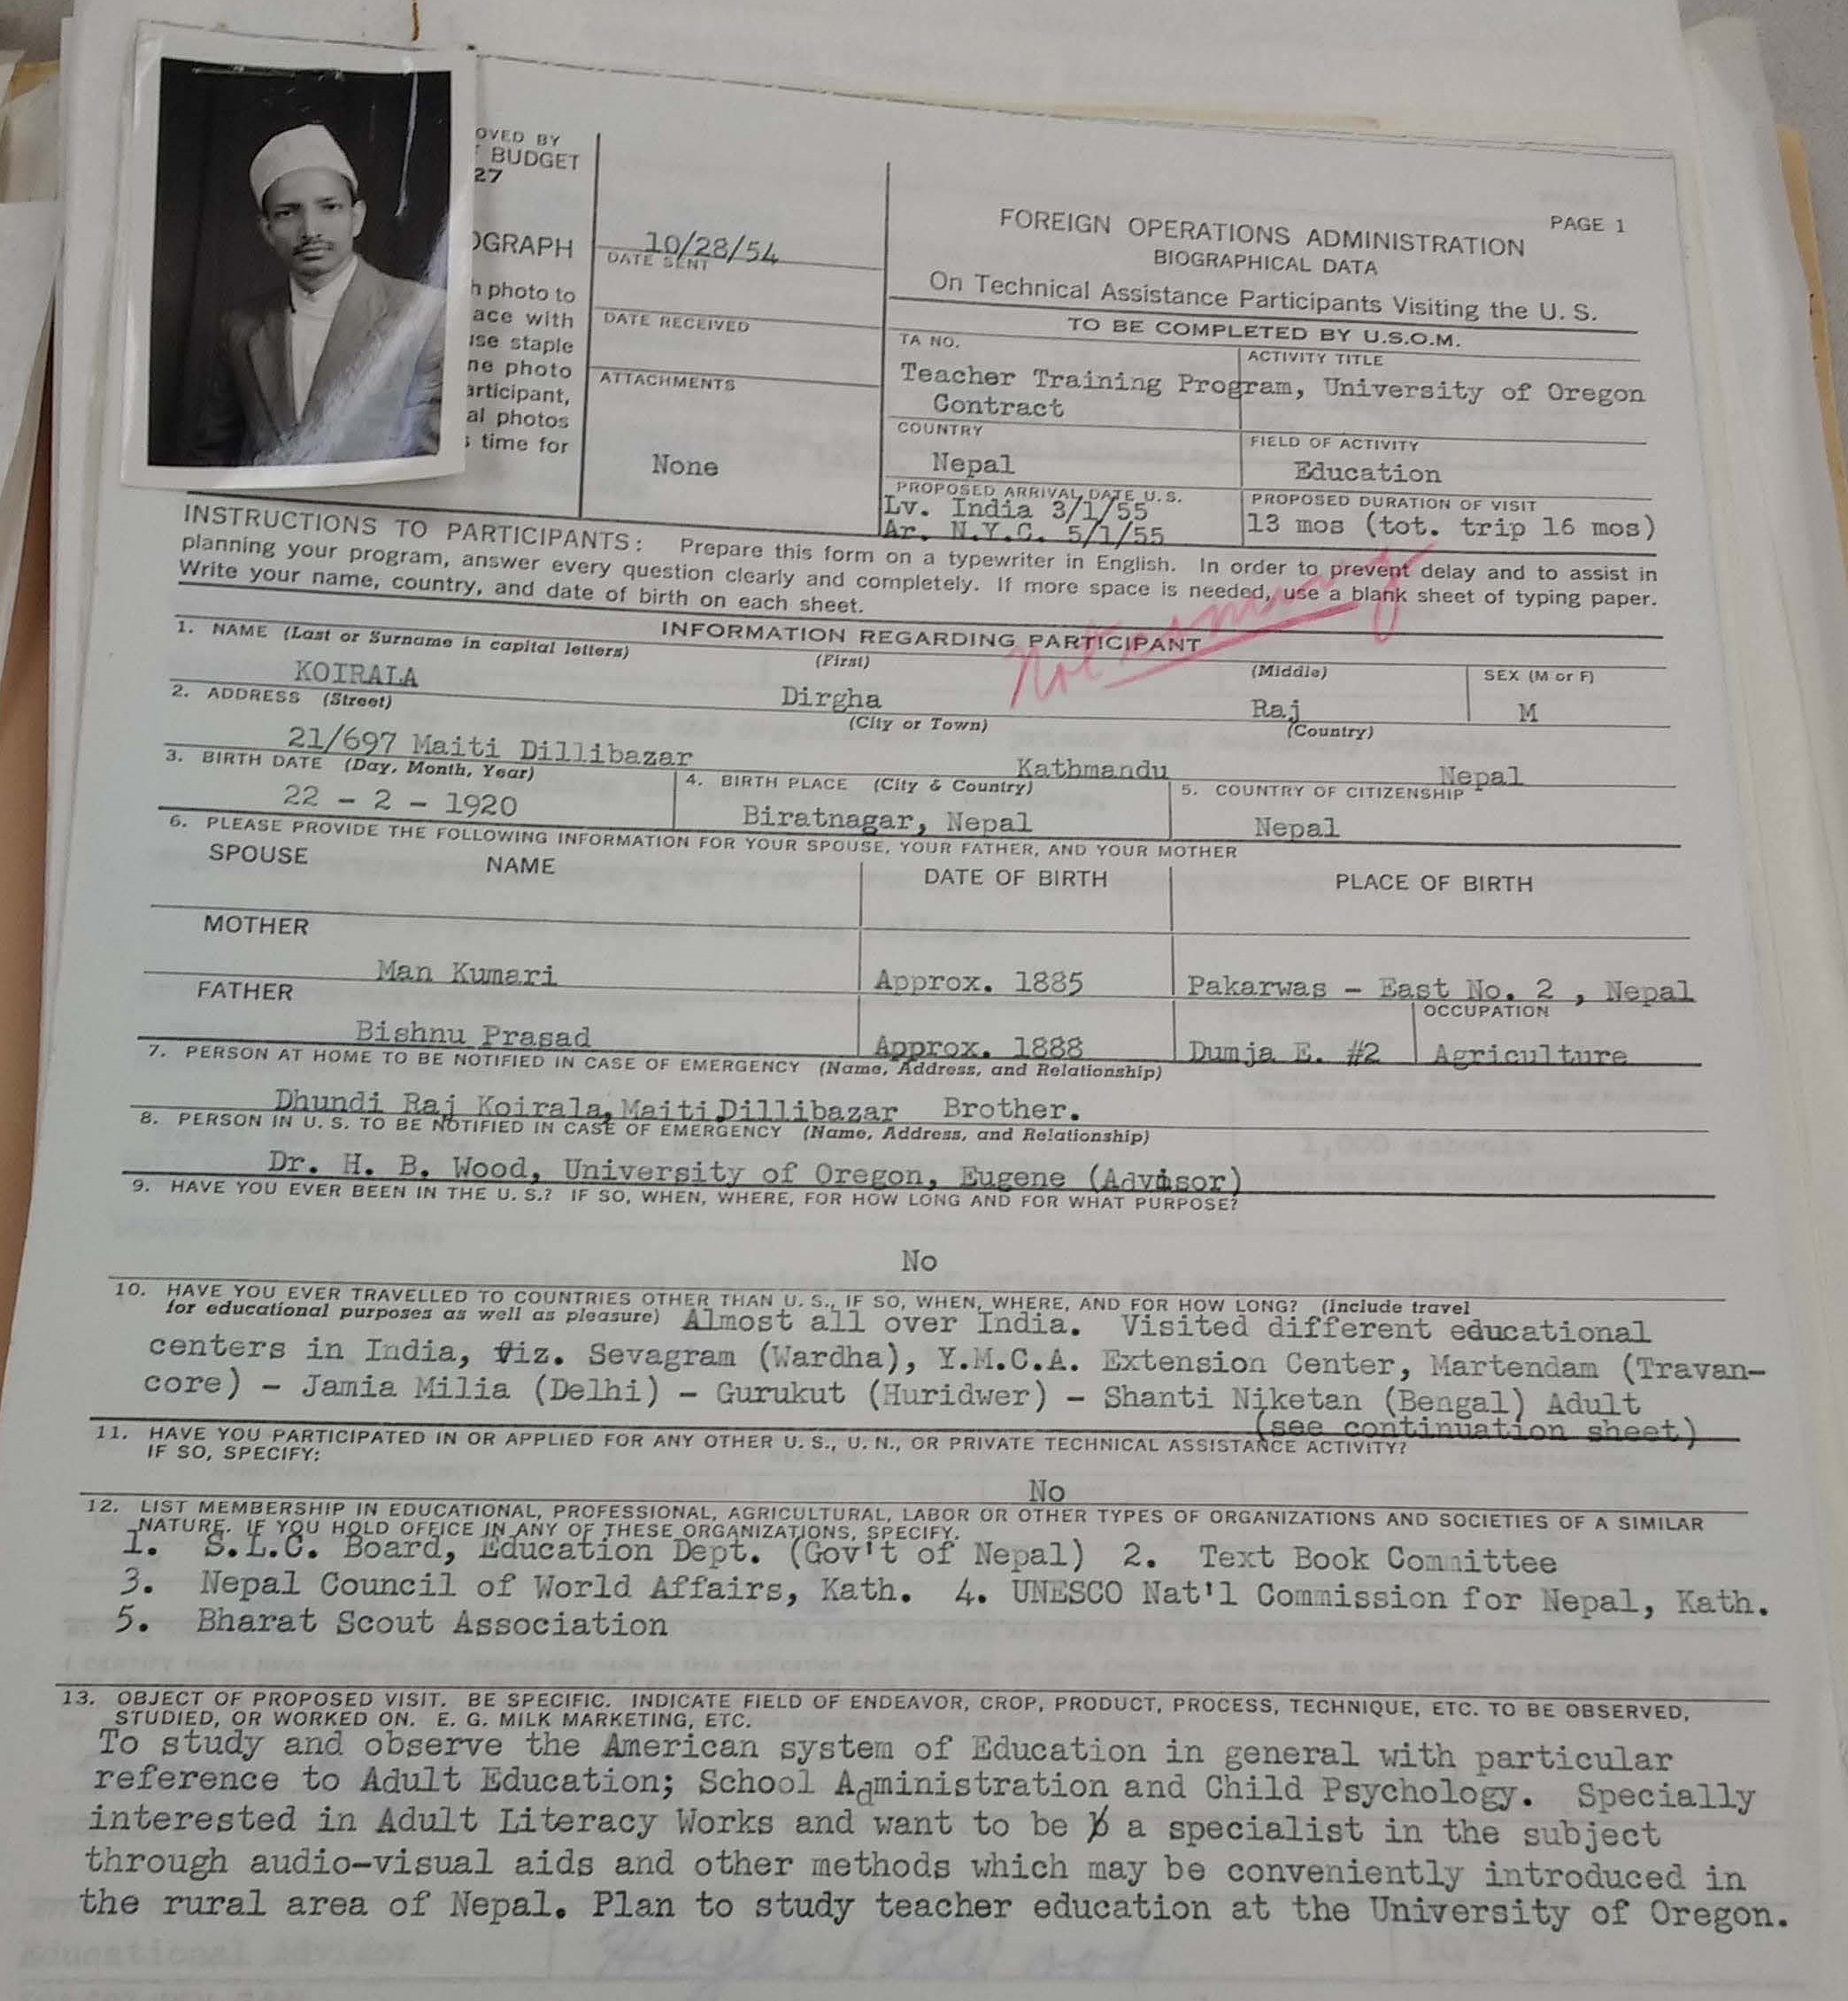 OVED BY
BUDGET
27
OGRAPH
h photo to
ace with
use staple
ne photo
articipant,
al photos
s time for
10/28/54
DATE SENT
DATE RECEIVED
ATTACHMENTS
None
PAGE 1
FOREIGN OPERATIONS ADMINISTRATION
BIOGRAPHICAL DATA
On Technical Assistance Participants Visiting the U. S.
TO BE COMPLETED BY U.S.O.M.
TA NO.
ACTIVITY TITLE
Teacher Training Program, University of Oregon
Contract
COUNTRY
FIELD OF ACTIVITY
Nepal
Education
PROPOSED ARRIVAL DATE U. S.
PROPOSED DURATION OF VISIT
Lv. India 3/1/55
13 mos (tot. trip 16 mos)
Ar. N.Y.C. 5/1/55
INSTRUCTIONS TO PARTICIPANTS: Prepare this form on a typewriter in English. In order to prevent delay and to assist in
planning your program, answer every question clearly and completely. If more space is needed, use a blank sheet of typing paper.
Write your name, country, and date of birth on each sheet.
Not coming
INFORMATION REGARDING PARTICIPANT
1. NAME (Last or Surname in capital letters) (First) (Middle) SEX (M or F)
KOIRALA Dirgha Raj M
2. ADDRESS (Street) (City or Town) (Country)
21/697 Maiti Dillibazar Kathmandu Nepal
3. BIRTH DATE (Day, Month, Year) 4. BIRTH PLACE (City & Country) 5. COUNTRY OF CITIZENSHIP
22 - 2 - 1920 Biratnagar, Nepal Nepal
6. PLEASE PROVIDE THE FOLLOWING INFORMATION FOR YOUR SPOUSE, YOUR FATHER, AND YOUR MOTHER
SPOUSE NAME DATE OF BIRTH PLACE OF BIRTH
MOTHER
Man Kumari Approx. 1885 Pakarwas - East No. 2 , Nepal
FATHER OCCUPATION
Bishnu Prasad Approx. 1888 Dumja E. #2 Agriculture
7. PERSON AT HOME TO BE NOTIFIED IN CASE OF EMERGENCY (Name, Address, and Relationship)
Dhundi Raj Koirala, Maiti Dillibazar Brother.
8. PERSON IN U. S. TO BE NOTIFIED IN CASE OF EMERGENCY (Name, Address, and Relationship)
Dr. H. B. Wood, University of Oregon, Eugene (Advisor)
9. HAVE YOU EVER BEEN IN THE U. S.? IF SO, WHEN, WHERE, FOR HOW LONG AND FOR WHAT PURPOSE?
No
10. HAVE YOU EVER TRAVELLED TO COUNTRIES OTHER THAN U. S., IF SO, WHEN, WHERE, AND FOR HOW LONG? (Include travel
for educational purposes as well as pleasure) Almost all over India. Visited different educational
centers in India, viz. Sevagram (Wardha), Y.M.C.A. Extension Center, Martendam (Travan-
core) - Jamia Milia (Delhi) - Gurukut (Huridwer) - Shanti Niketan (Bengal) Adult
(see continuation sheet)
11. HAVE YOU PARTICIPATED IN OR APPLIED FOR ANY OTHER U. S., U. N., OR PRIVATE TECHNICAL ASSISTANCE ACTIVITY?
IF SO, SPECIFY:
No
12. LIST MEMBERSHIP IN EDUCATIONAL, PROFESSIONAL, AGRICULTURAL, LABOR OR OTHER TYPES OF ORGANIZATIONS AND SOCIETIES OF A SIMILAR
NATURE. IF YOU HOLD OFFICE IN ANY OF THESE ORGANIZATIONS, SPECIFY.
1. S.L.C. Board, Education Dept. (Gov't of Nepal) 2. Text Book Committee
3. Nepal Council of World Affairs, Kath. 4. UNESCO Nat'l Commission for Nepal, Kath.
5. Bharat Scout Association
13. OBJECT OF PROPOSED VISIT. BE SPECIFIC. INDICATE FIELD OF ENDEAVOR, CROP, PRODUCT, PROCESS, TECHNIQUE, ETC. TO BE OBSERVED,
STUDIED, OR WORKED ON. E. G. MILK MARKETING, ETC.
To study and observe the American system of Education in general with particular
reference to Adult Education; School Administration and Child Psychology. Specially
interested in Adult Literacy Works and want to be a specialist in the subject
through audio-visual aids and other methods which may be conveniently introduced in
the rural area of Nepal. Plan to study teacher education at the University of Oregon.